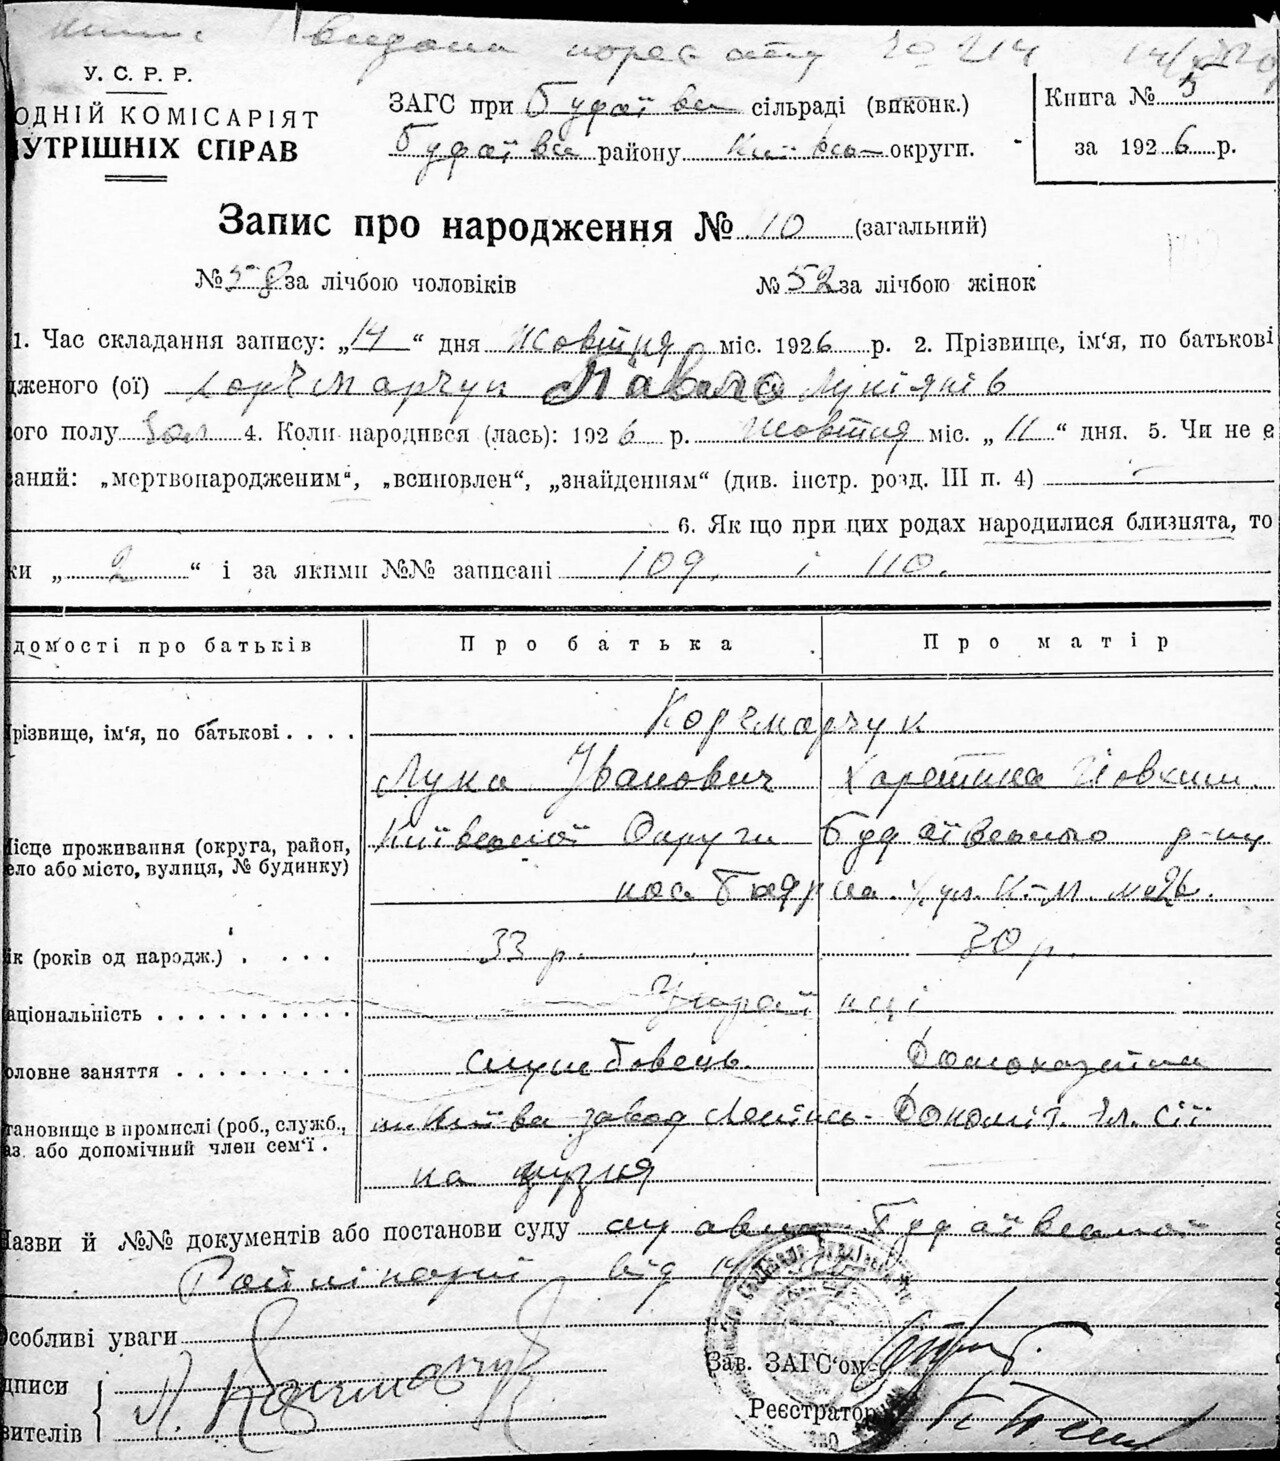 видана
У. С. Р. Р.
ОДНІЙ КОМІСАРІЯТ
УТРІШНІХ СПРАВ
ЗАГС при Будаївськ сільраді (виконк.)
Будаївськ району Київськ округи.
Книга № 5
за 1926 р.
Запис про народження № 110 (загальний)
№ 58 за лічбою чоловіків
№ 52 за лічбою жінок
1. Час складання запису: „14“ дня Жовтня міс. 1926 р. 2. Прізвище, ім‘я, по батькові
дженого (ої) Корчмарчук Павло Лукіянів
ого полу чол 4. Коли народився (лась): 1926 р. Жовтня міс. „11“ дня. 5. Чи не є
аний: „мертвонародженим“, „всиновлен“, „знайденням“ (див. інстр. розд. III п. 4)
6. Якщо при цих родах народилися близнята, то
ки „2“ і за якими №№ записані 109 і 110.
домості про батьків
Про батька
Про матір
різвище, ім‘я, по батькові
Корчмарчук
Лука Іванович
Харетина Йовхим.
ісце проживання (округа, район,
ело або місто, вулиця, № будинку)
Київської Округи Будаївського р-ну
пос Боярка вул. К-М. № 26.
ік (років од народж.)
33 р.
30 р.
аціональність
Українці
оловне заняття
службовець.
Домохазяйка
тановище в промислі (роб., служб.,
аз. або допомічний член сем‘ї.
м. Київа завод Ленінсь-
на кузня
Допоміж. чл. сії
азви й №№ документів або постанови суду
Будаївської
Райлікарні від
собливі уваги
дписи
вителів
Корчмарчук
Зав. ЗАГС‘ом
Реєстратор